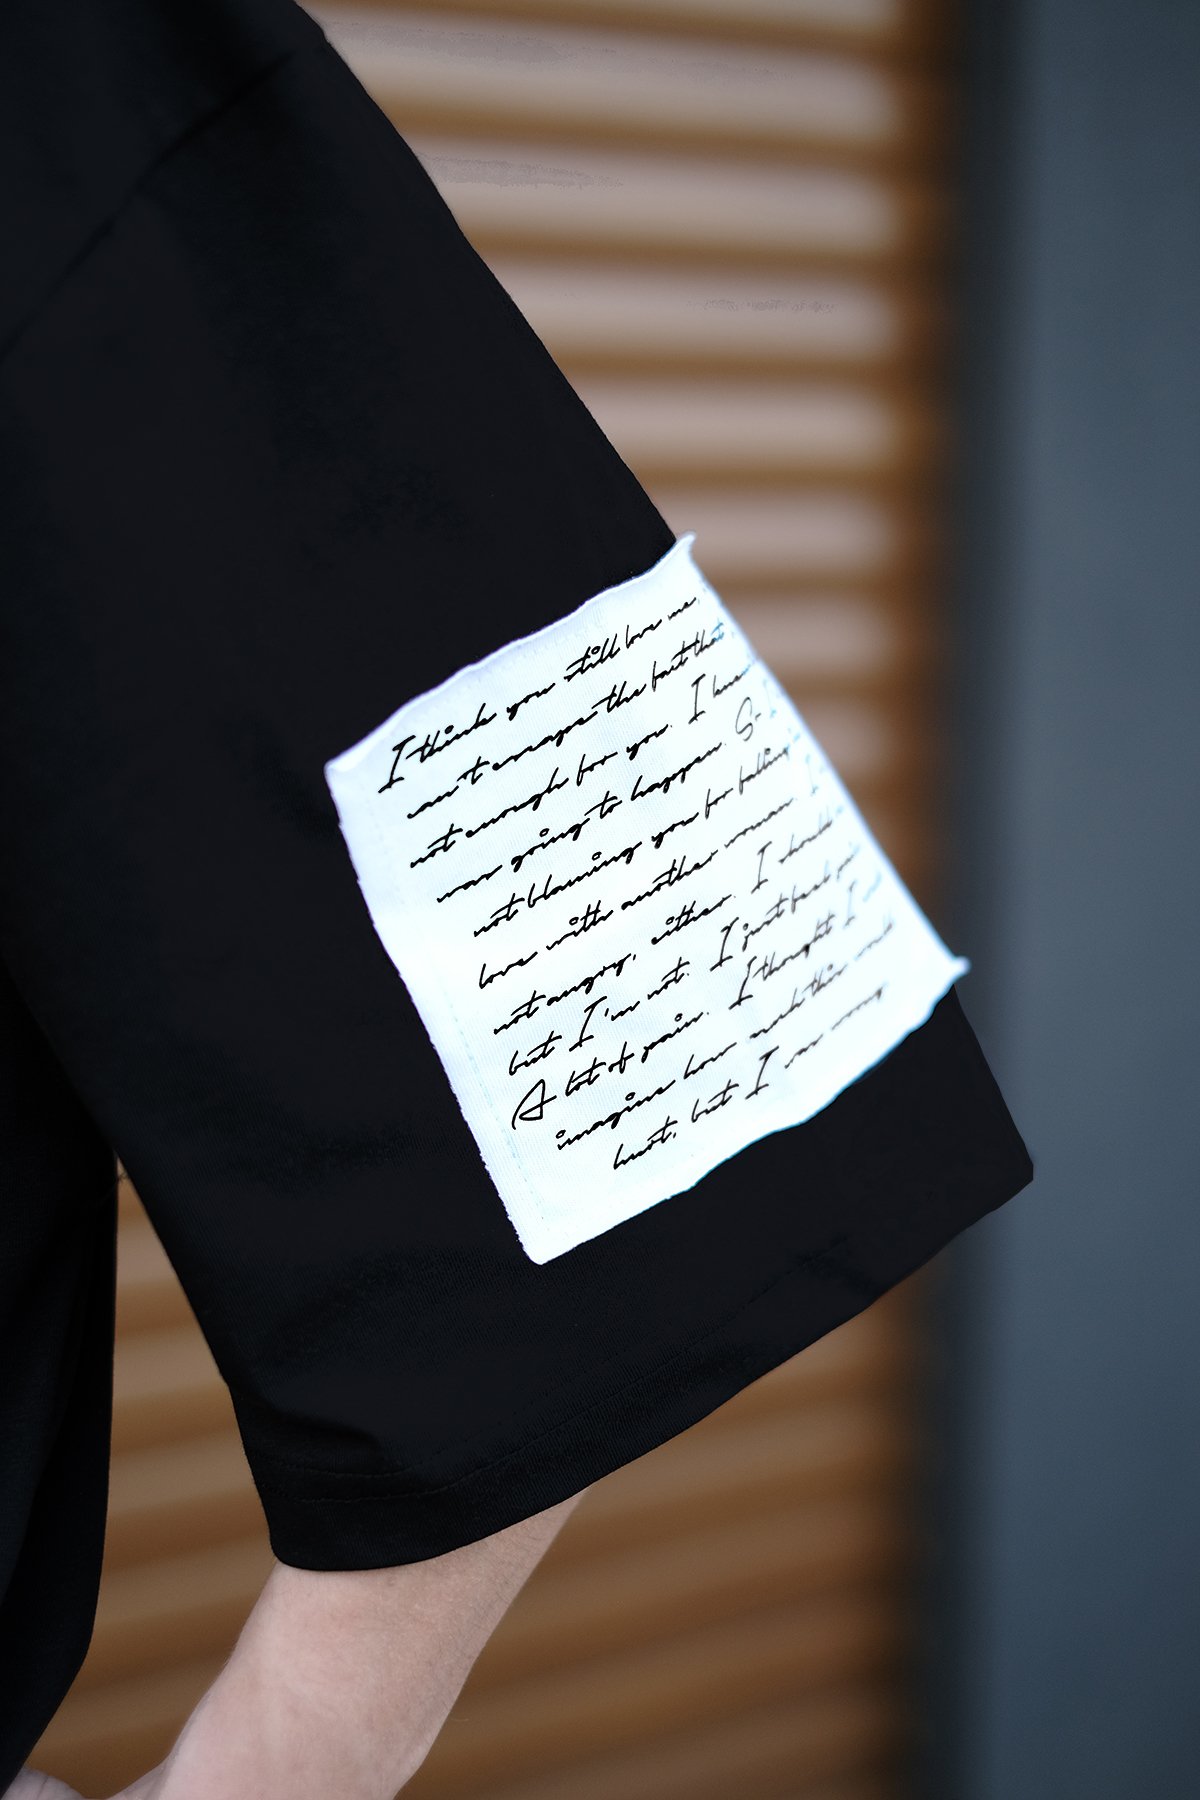 I think you still love me,
can't escape the fact that
not enough for you. I knew
was going to happen. So I
not blaming you for falling in
love with another woman. I
not angry, either. I should
but I'm not. I just feel pain.
A lot of pain. I thought I
imagine how much this would
hurt, but I was wrong